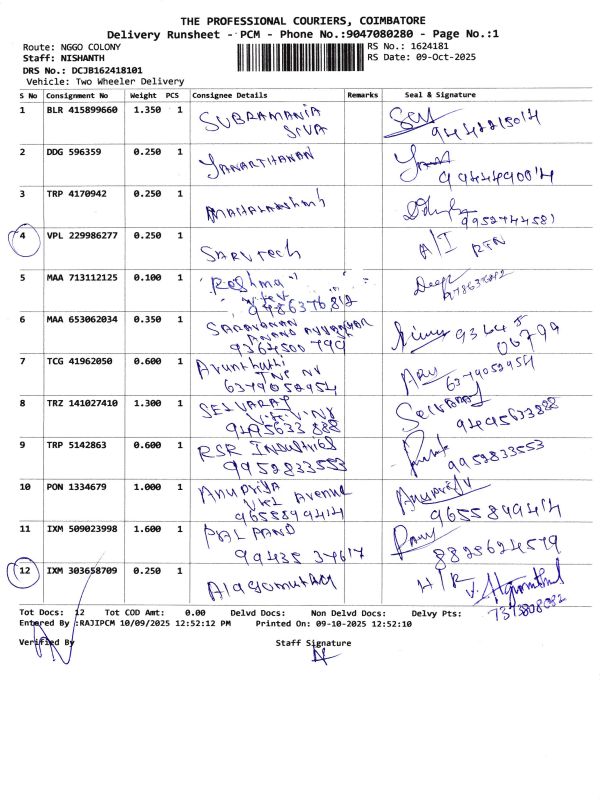 THE PROFESSIONAL COURIERS, COIMBATORE
Delivery Runsheet - PCM - Phone No.:9047080280 - Page No.:1
Route: NGGO COLONY
RS No.: 1624181
Staff: NISHANTH
RS Date: 09-Oct-2025
DRS No.: DCJB162418101
Vehicle: Two Wheeler Delivery
S No Consignment No Weight PCS Consignee Details Remarks Seal & Signature
1 BLR 415899660 1.350 1 SUBRAMANIA
SIVA
2 DDG 596359 0.250 1 JANARTHANAN
3 TRP 4170942 0.250 1
9952744581
4 VPL 229986277 0.250 1 SARVTech A/I RTN
5 MAA 713112125 0.100 1 Reshma Deepa
9486376812
6 MAA 653062034 0.350 1 SARAVANAN
9364500799 93645
06799
7 TCG 41962050 0.600 1 Arunthathi
TNS NV
6379052954 6379052954
8 TRZ 141027410 1.300 1 SELVARAJ
V.K.V.NV
9495633888 9495633888
9 TRP 5142863 0.600 1 RSR Industries
9952833553 9952833553
10 PON 1334679 1.000 1 Anupriya Anupriya
VKL Avenue
9655899414 9655899414
11 IXM 509023998 1.600 1 PAL PAND
99435 37617 8825624579
12 IXM 303658709 0.250 1 Alagomuthu H/R
7373808082
Tot Docs: 12 Tot COD Amt: 0.00 Delvd Docs: Non Delvd Docs: Delvy Pts:
Entered By :RAJIPCM 10/09/2025 12:52:12 PM Printed On: 09-10-2025 12:52:10
Verified By Staff Signature